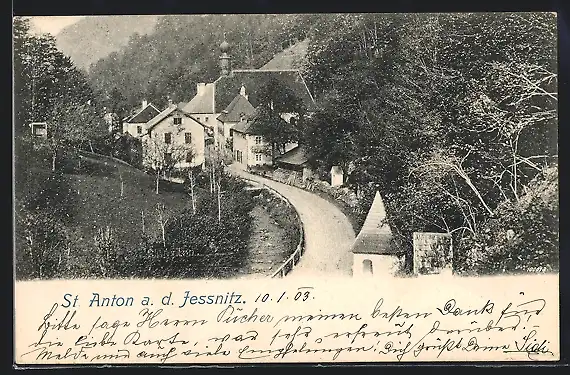 St. Anton a. d. Jessnitz. 10./1. 03.
Bitte sage Herrn Pücher meinen besten Dank für
die liebe Karte, hat sehr erfreut darüber. Ich
Melde mich auch viele Empfehlungen! Dich grüßt Deine Sidi